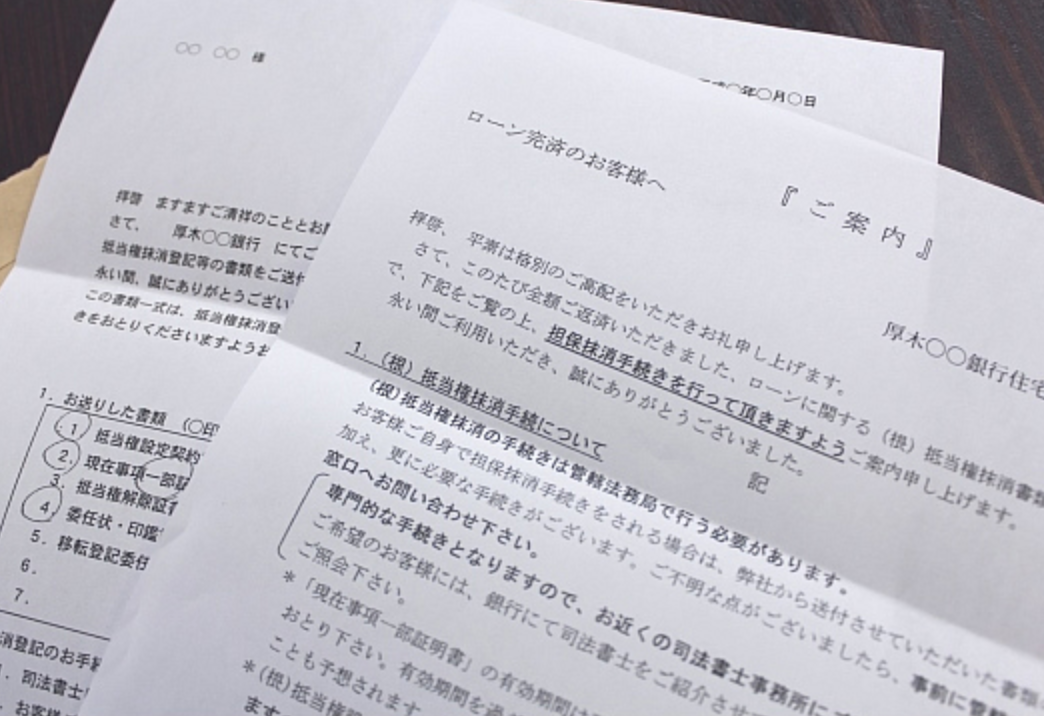 ○○ ○○ 様
拝啓 ますますご清祥のこととお
さて、 厚木○○銀行 にてご
抵当権抹消登記等の書類をご送付
永い間、誠にありがとうござい
この書類一式は、抵当権抹消登
きをおとりくださいますようお
1. お送りした書類 (○印
1 抵当権設定契約
2. 現在事項一部証
3. 抵当権解除証書
4. 委任状・印鑑
5. 移転登記委任
6.
7.
消登記のお手続
1. 司法書士
. お客様
年○月○日
ローン完済のお客様へ
『ご案内』
厚木○○銀行住宅
拝啓、 平素は格別のご高配をいただきお礼申し上げます。
さて、このたび全額ご返済いただきました、ローンに関する（根）抵当権抹消書類
で、下記をご覧の上、担保抹消手続きを行って頂きますようご案内申し上げます。
永い間ご利用いただき、誠にありがとうございました。
記
1.（根）抵当権抹消手続について
(根)抵当権抹消の手続きは管轄法務局で行う必要があります。
お客様ご自身で担保抹消手続きをされる場合は、弊社から送付させていただいた書類
加え、更に必要な手続きがございます。ご不明な点がございましたら、事前に管轄
窓口へお問い合わせ下さい。
専門的な手続きとなりますので、お近くの司法書士事務所に
ご希望のお客様には、銀行にて司法書士をご紹介させ
ご照会下さい。
＊「現在事項一部証明書」の有効期間は
おとり下さい。有効期間を過
ことも予想されます
＊(根)抵当権
ます